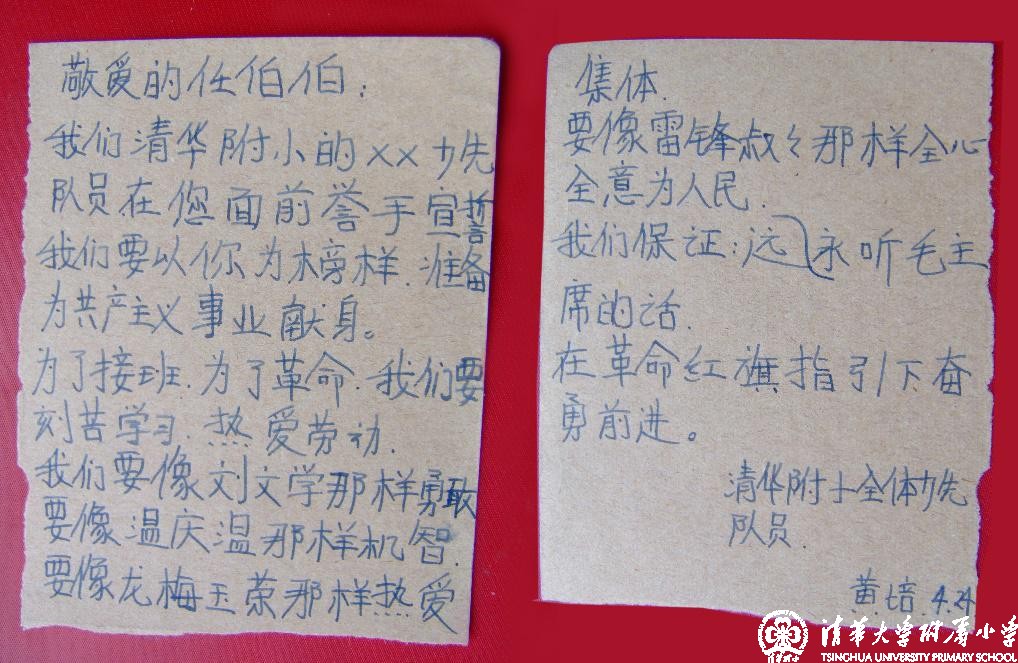 敬爱的任伯伯：
我们清华附小的××少先
队员在您面前誉手宣誓
我们要以你为榜样.准备
为共产主义事业献身。
为了接班.为了革命.我们要
刻苦学习.热爱劳动.
我们要像刘文学那样勇敢
要像温庆温那样机智.
要像龙梅玉荣那样热爱
集体.
要像雷锋叔々那样全心
全意为人民.
我们保证:远永听毛主
席的话.
在革命红旗指引下奋
勇前进。
清华附小全体少先
队员.
黄培.4.4
清华大学附属小学
TSINGHUA UNIVERSITY PRIMARY SCHOOL